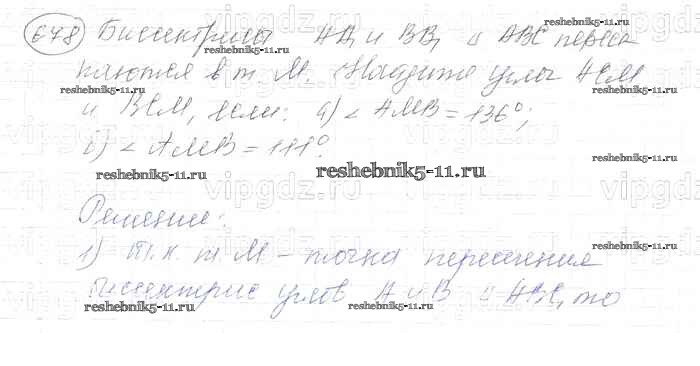 678 Биссектрисы AA₁ и BB₁ △ ABC пересе
каются в т. M. Найдите углы ACM
и BCM, если: а) ∠ AMB = 136°;
б) ∠ AMB = 111°.
Решение:
1) Т.к. т. M – точка пересечения
биссектрис углов A и B △ ABC, то
reshebnik5-11.ru
vipgdz.ru